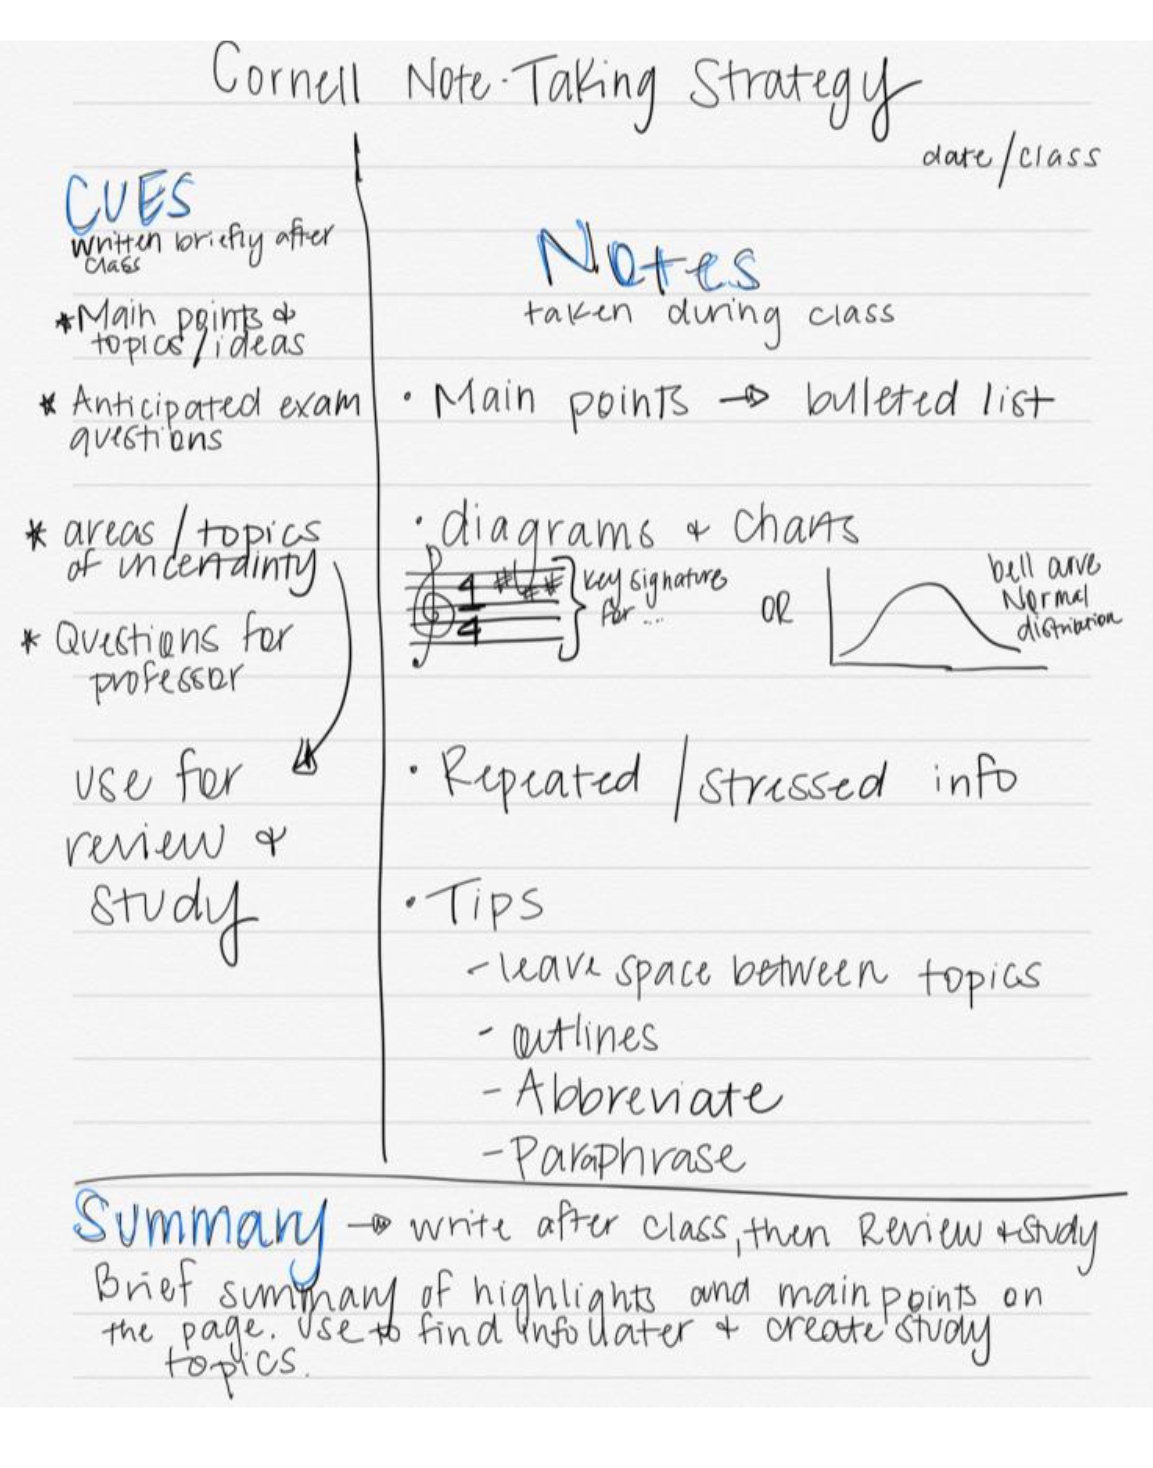 Cornell Note-Taking Strategy
date/class
CUES
written briefly after
class
*Main points &
topics/ideas
* Anticipated exam
questions
* areas/topics
of uncertainty
* Questions for
professor
use for
review &
study
Notes
taken during class
• Main points → bulleted list
• diagrams & Charts
4
4
# # # #
key signature
for ...
OR
bell curve
Normal
distribution
• Repeated / stressed info
• Tips
- leave space between topics
- outlines
- Abbreviate
- Paraphrase
Summary → write after class, then Review & study
Brief summary of highlights and main points on
the page. Use to find info later & create study
topics.